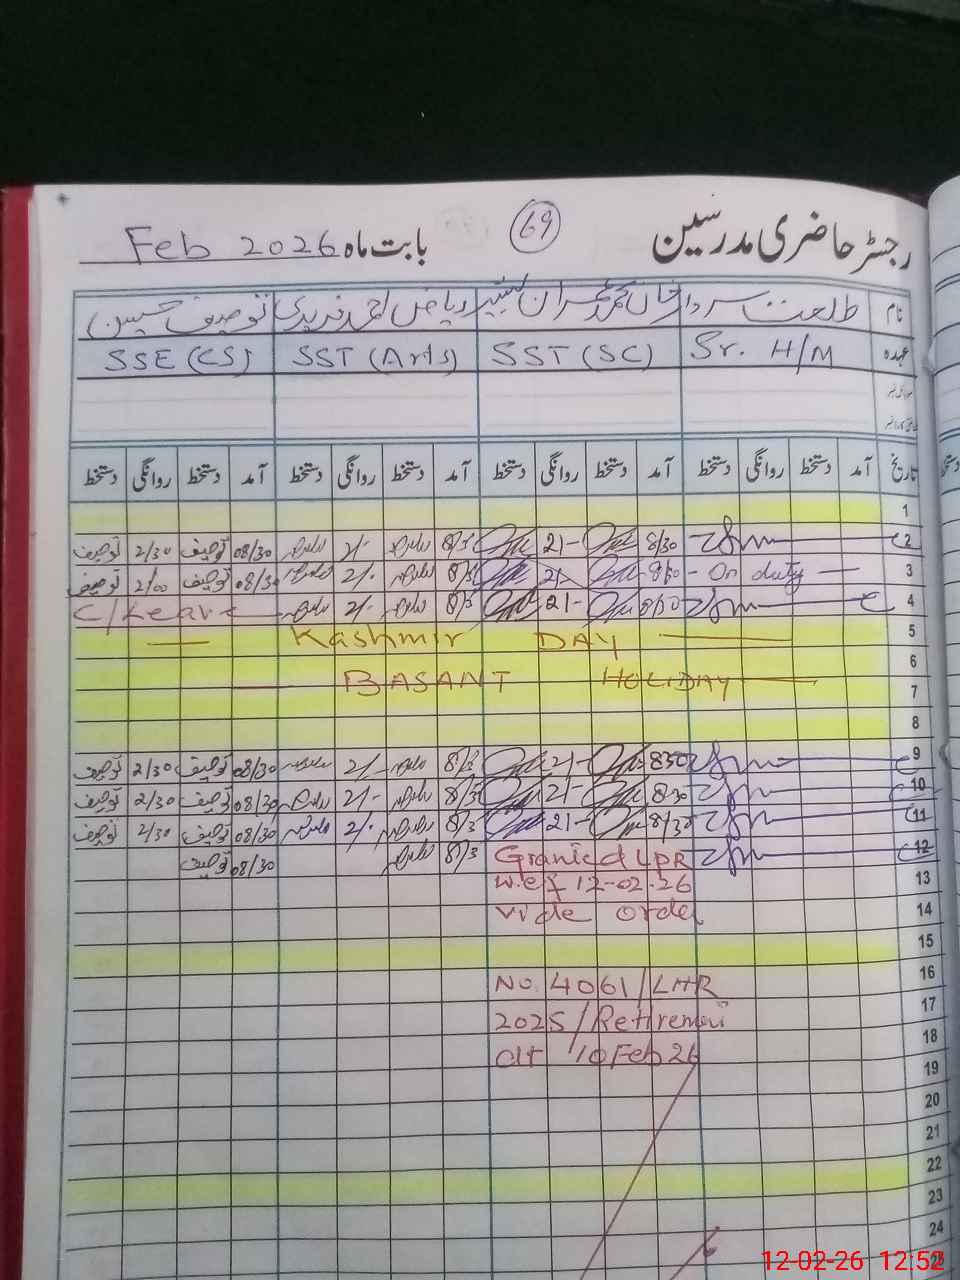 رجسٹر حاضری مدرسین 69 بابت ماہ Feb 2026
نام طلعت سردار خان محمد عمران ریاض احمد فریدی توصیف حسین
عہدہ Sr. H/M SST (SC) SST (Arts) SSE (CS)
تاریخ آمد دستخط روانگی دستخط آمد دستخط روانگی دستخط آمد دستخط روانگی دستخط آمد دستخط روانگی دستخط
1
2 8/30 2/- 8/3 2/- 08/30 توصیف 2/30 توصیف
3 - On duty - 8/30 2/- 8/3 2/- 08/30 توصیف 2/00 توصیف
4 8/30 2/- 8/3 2/- C/Leave
5 Kashmir DAY
6
7 BASANT HOLIDAY
8
9 830 2/- 8/3 2/- 08/30 توصیف 2/30 توصیف
10 8/30 2/- 8/3 2/- 08/30 توصیف 2/30 توصیف
11 8/30 2/- 8/3 2/- 08/30 توصیف 2/30 توصیف
12 Granted LPR 8/3 08/30 توصیف
13 w.e.f 12-02-26
14 vide order
15
16 No. 4061/LHR
17 2025/Retirement
18 dt 10 Feb 26
19
20
21
22
23
24
25
12-02-26 12:52